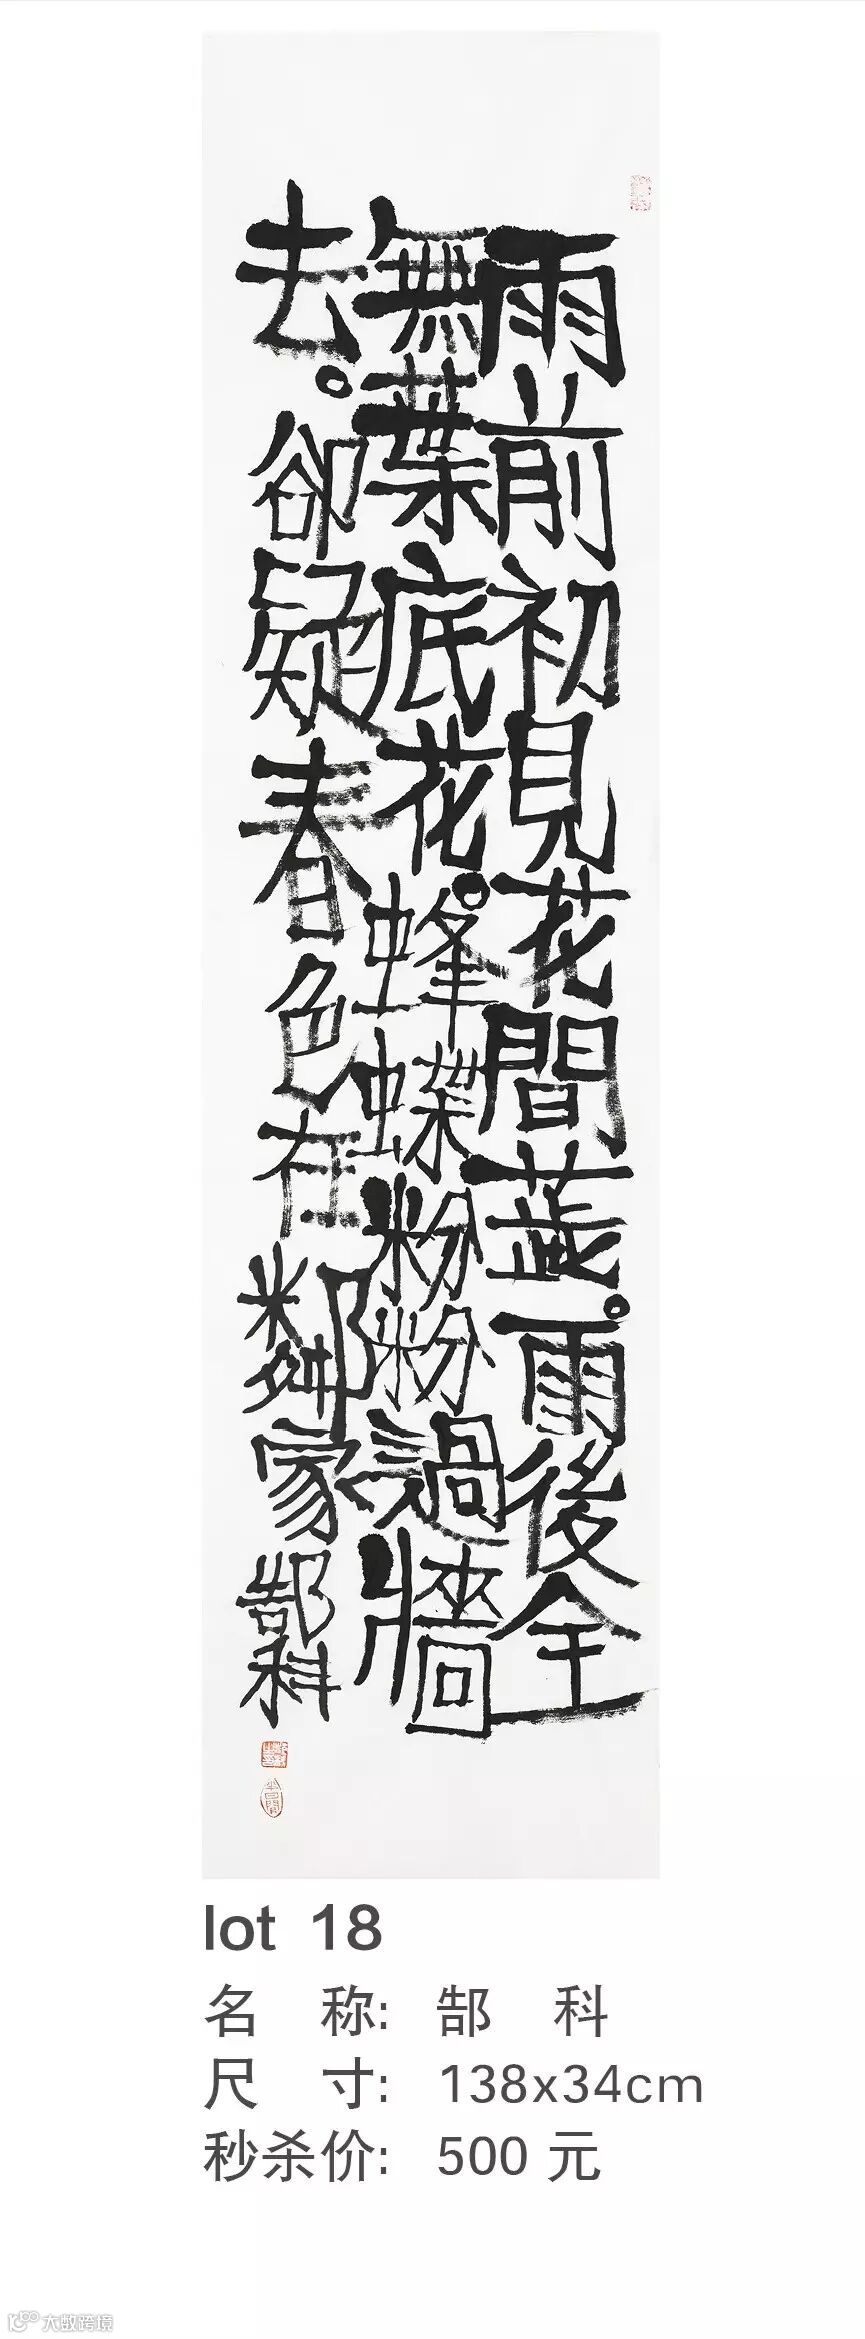 雨前初見花間蕋。雨後全
無葉底花。蜂蝶粉粉過牆
去。卻疑春色在鄰家 郜科
lot 18
名 称: 郜 科
尺 寸: 138x34cm
秒杀价: 500 元
大数跨境